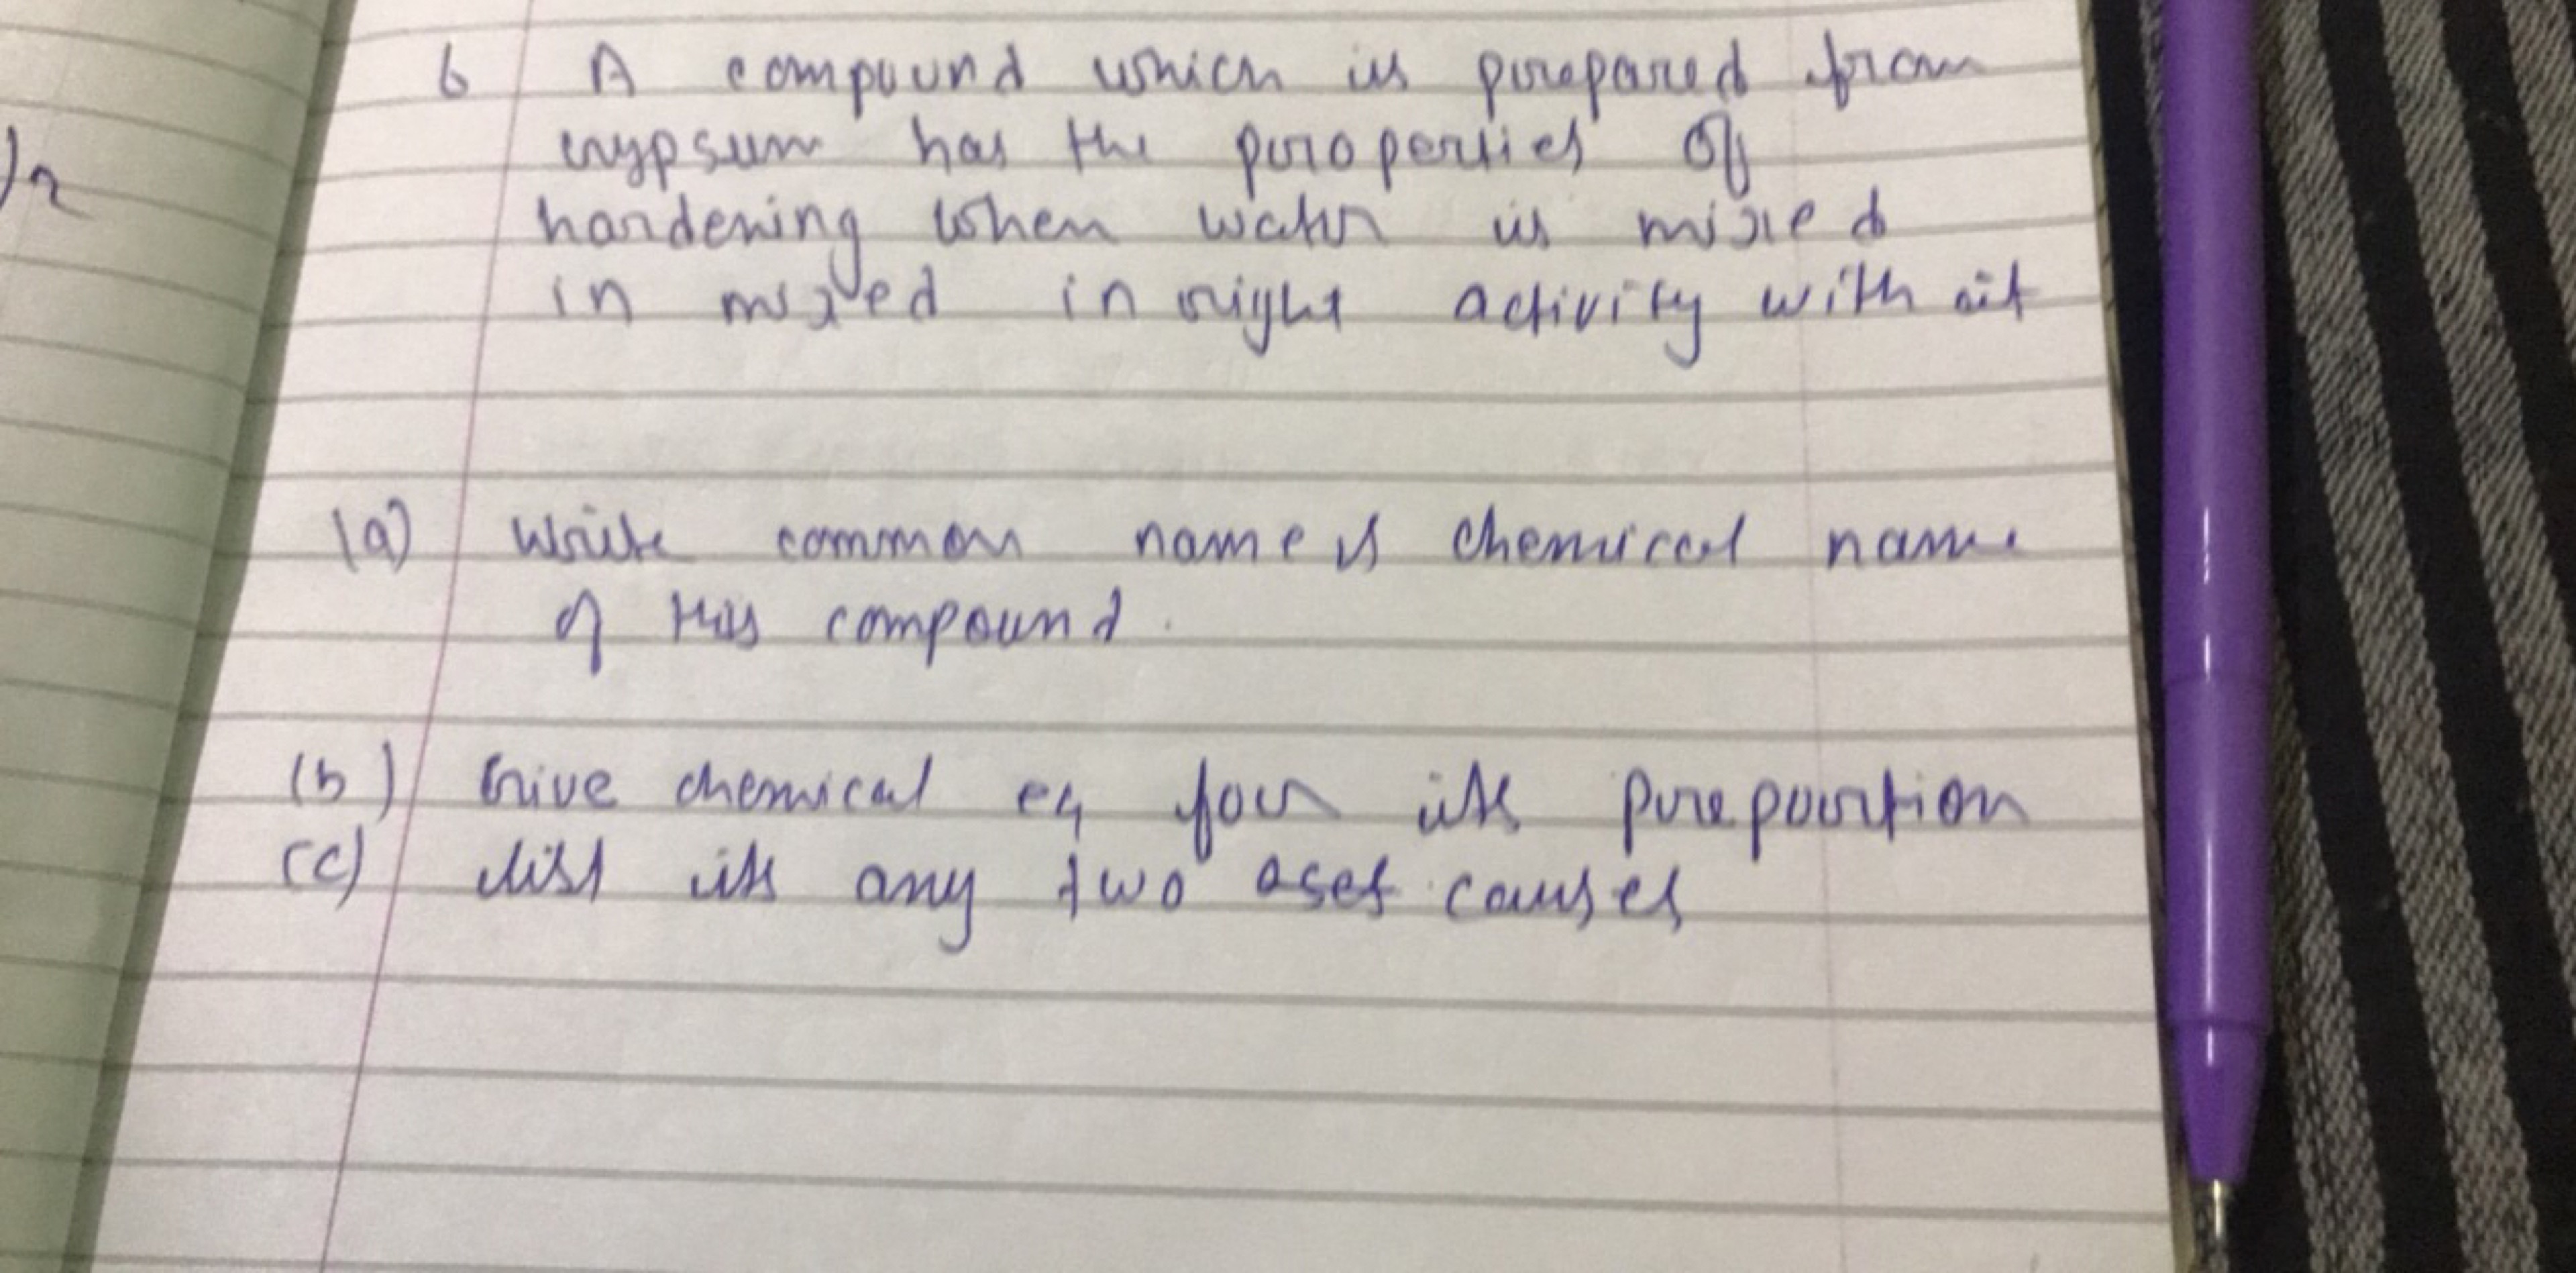 )2
6 A compound which is prepared from
gypsum has the properties of
hardening when water is mixed
in mixed in right activity with it
(a) Write common name & chemical name
of this compound.
(b) Give chemical eq for its preparation
(c) list its any two uses causes